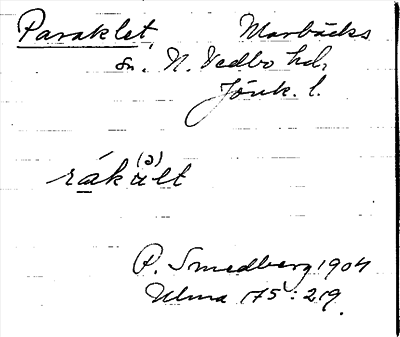 Paraklet, Marbäcks
sn. N. Vedbo hd,
Jönk. l.
(ə)
råkält
P. Smedberg 1904
Ulma 175:219.